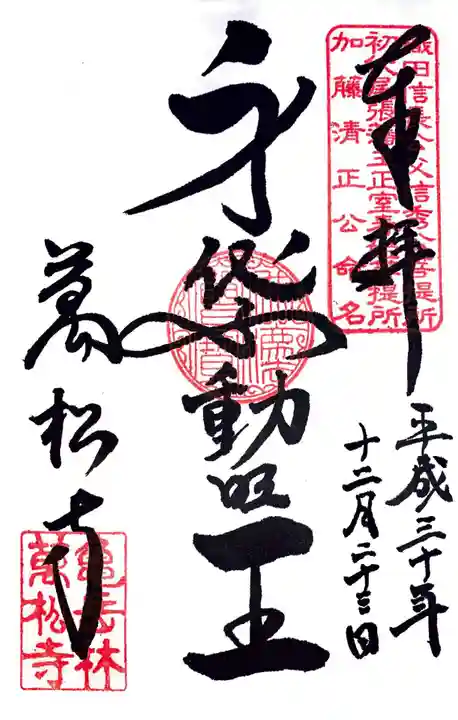 奉拝
織田信長公父信秀公菩提所
初代尾張藩主正室春姫菩提所
加藤清正公命名
平成三十年
十二月二十三日
身代不動明王
萬松寺
亀岳林
萬松寺